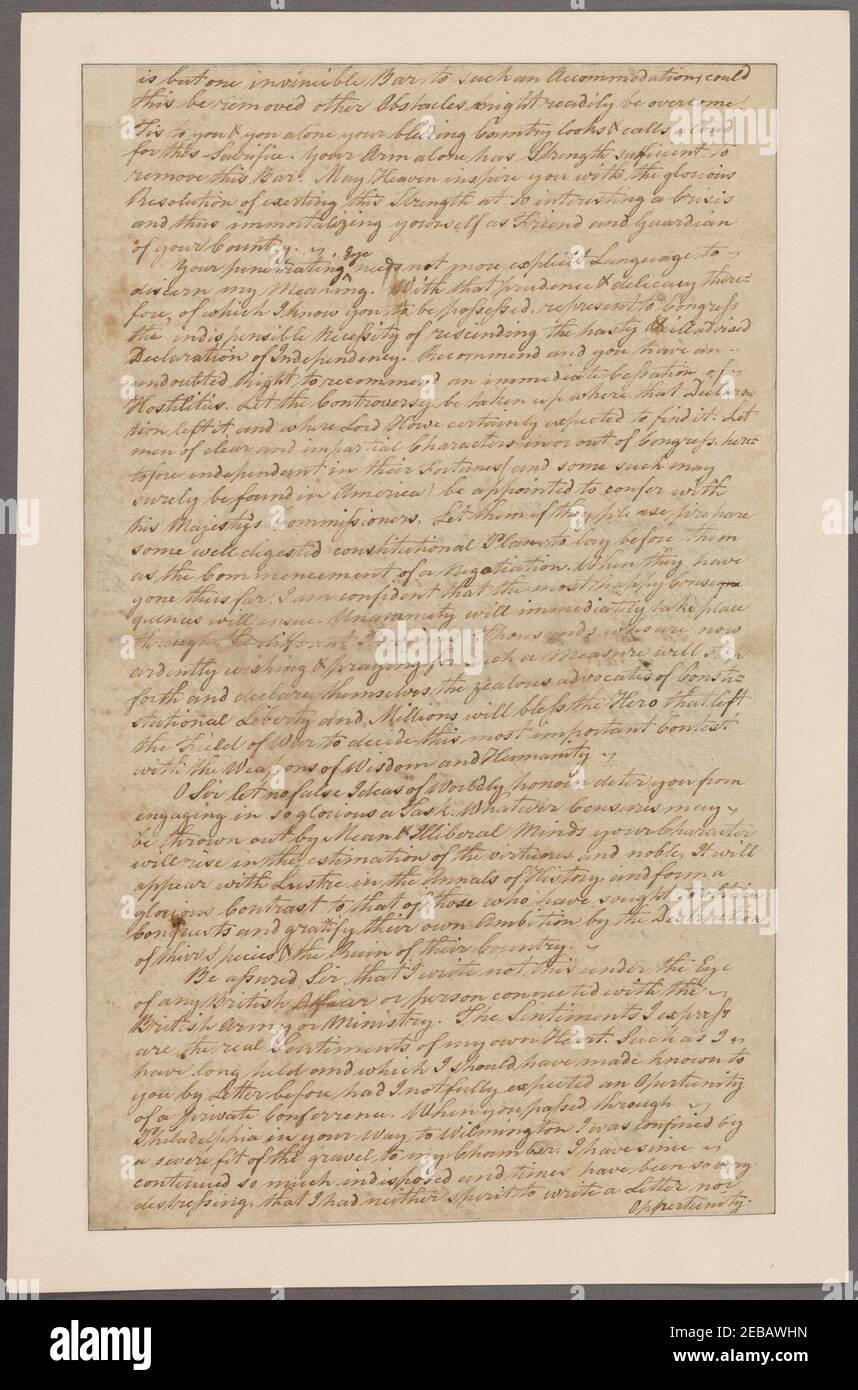 is but one invincible Bar to such an Accommodation, could
this be removed other Obstacles might readily be overcome.
Tis to you & you alone your bleeding Country looks & calls aloud
for this Sacrifice. Your Arm alone has Strength sufficient to
remove this Bar. May Heaven inspire you with the glorious
Resolution of exerting this Strength at so interesting a Crisis
and thus immortalizing yourself as Friend and Guardian
of your Country.
Eye
Your penetrating needs not more explicit Language to
discern my Meaning. With that prudence & delicacy there=
fore, of which I know you to be possessed, represent to Congress
the indispensible Necessity of rescinding the hasty & ill advised
Declaration of Independency. Recommend and you have an
undoubted Right to recommend an immediate Cessation of
Hostilities. Let the Controversy be taken up where that Declara=
tion left it and where Lord Howe certainly expected to find it. Let
men of clear and impartial Characters in or out of Congress, here=
tofore independant in their Fortunes (and some such may
surely be found in America) be appointed to confer with
his Majesty's Commissioners. Let them if they please prepare
some well digested constitutional Plan to lay before them
as the Commencement of a Negotiation. When they have
gone thus far I am confident that the most happy Conse
quences will ensue. Unanimity will immediately take place
through the different Thousands who are now
ardently wishing & praying for such a Measure will step
forth and declare themselves the zealous advocates of Consti=
stutional Liberty and Millions will bless the Hero that left
the Field of War to decide this most important Contest
with the Weapons of Wisdom and Humanity
O Sir let no false Ideas of Worldly honour deter you from
engaging in so glorious a Task. Whatever Censures may
be thrown out by Mean & Illiberal Minds your Character
will rise in the estimation of the virtuous and noble. It will
appear with Lustre in the Annals of History, and form a
glorious Contrast to that of those who have sought to obtain
Conquests and gratify their own Ambition by the Destruction
of their Species & the Ruin of their Country.
Be assured Sir, that I write not this under the Eye
of any British Officer or person connected with the
British Army or Ministry. The Sentiments I express
are the real Sentiments of my own Heart. Such as I
have long held and which I should have made known to
you by Letter before, had I not fully expected an Opertunity
of a private Conferrence. When you passed through
Philadelphia in your way to Wilmington I was confined by
a severe fit of the gravel to my Chamber. I have since
continued so much indisposed and times have been so very
destressing, that I had neither spirit to write a Letter nor
Oppertunity.
alamy
Image ID: 2EBAWHN
www.alamy.com